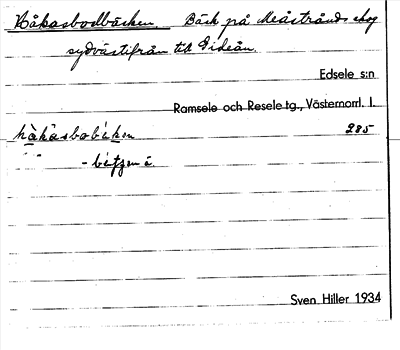 Håkasbodbäcken Bäck på Meåstrands skog
sydvästifrån till Gideån.
Edsele s:n
Ramsele och Resele tg., Västernorrl. l.
hàkásbobäcken 285
" " - bätjen ä.
Sven Hiller 1934